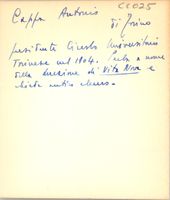 CC025
Cappa Antonio
di Torino
presidente Circolo Universitario
Torinese nel 1904. Parla a nome
della direzione di Vita Nova e